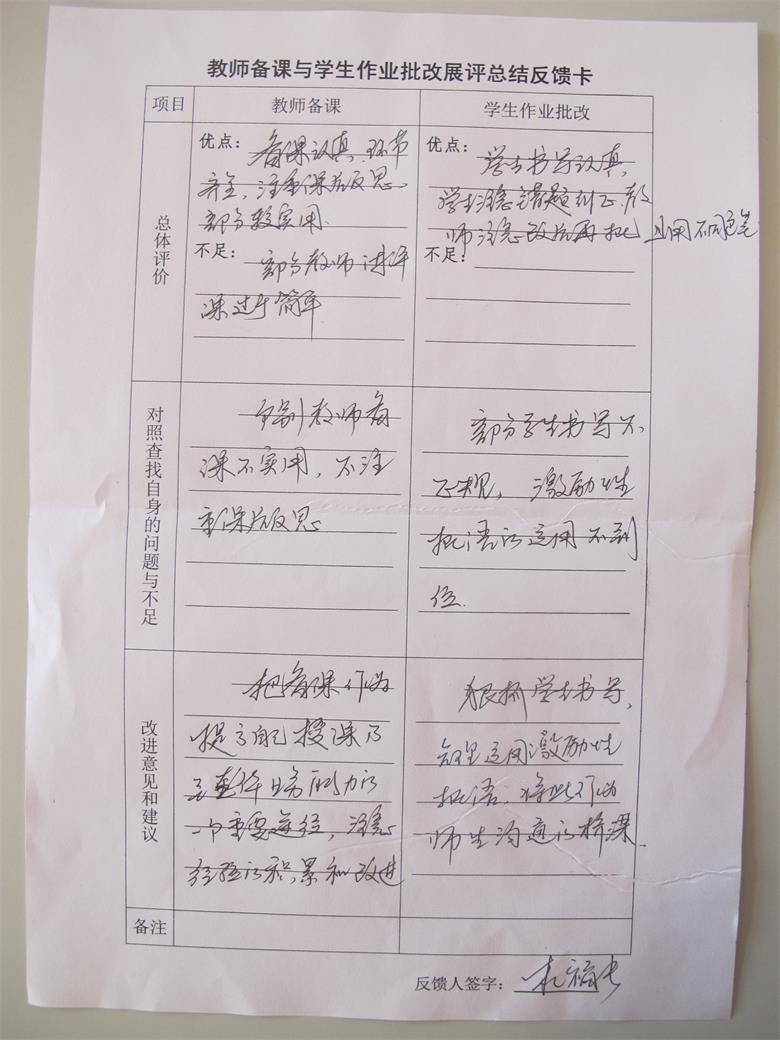 教师备课与学生作业批改展评总结反馈卡
项目
教师备课
学生作业批改
总体评价
优点：备课认真，环节
齐全，注重课后反思、
部分较实用.
不足：部分教师讲评
课过于简单
优点：学生书写认真，
学生注意错题纠正.教
师注意改后再批 且用不同色笔
不足：
对照查找自身的问题与不足
个别教师备
课不实用，不注
重课后反思
部分学生书写不
正规，激励性
批语的运用不到
位.
改进意见和建议
把备课作为
提高自己授课及
业务能力的
一个重要途径，注意
经验的积累和改进
狠抓学生书写，
合理运用激励性
批语，将此作为
师生沟通的桥梁.
备注
反馈人签字：